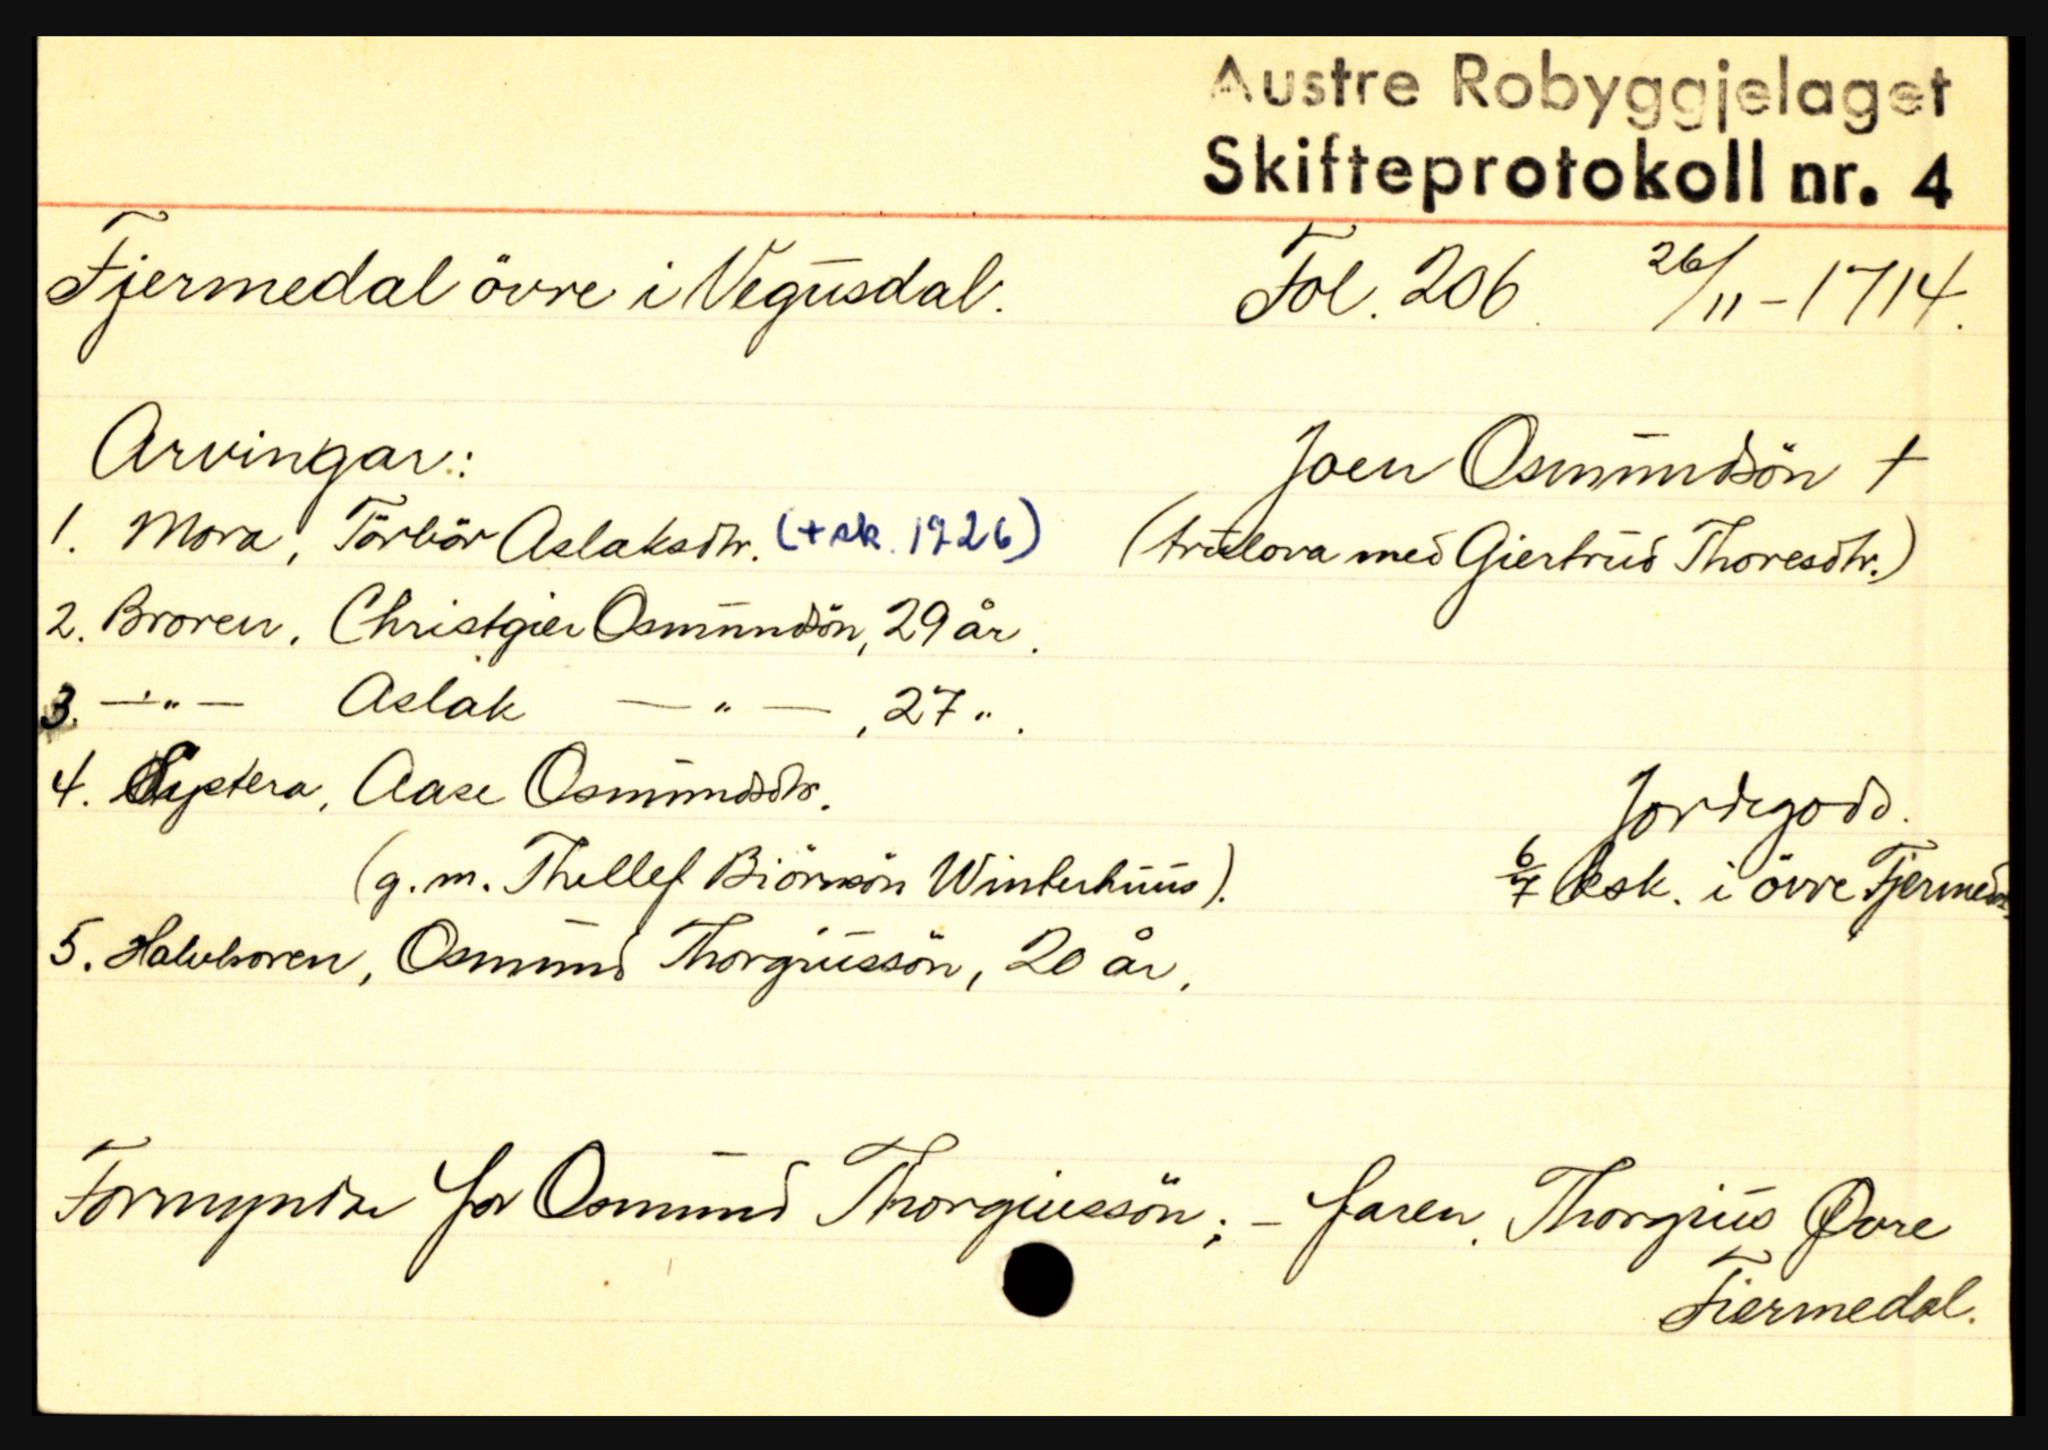 Austre Robyggjelaget
Skifteprotokoll nr. 4
Fjermedal övre i Vegusdal. Fol. 206. 26/11-1714.
Arvingar: Joen Osmundsön †
1. Mora, Törbör Aslaksdtr. (+ sk. 1726) (trulova med Giertrud Thoresdtr.)
2. Broren, Christgier Osmundsön, 29 år.
3. —"— Aslak —"—, 27 ".
4. Systera, Aase Osmundsdtr. Jordegods.
(g.m. Thellef Biörnsön Winterhuus). 6/7 bsk. i övre Fjermedal
5. Halvbroren, Osmund Thorgiussön, 20 år.
Formyndar for Osmund Thorgiussön; - faren, Thorgius Øvre
Fiermedal.